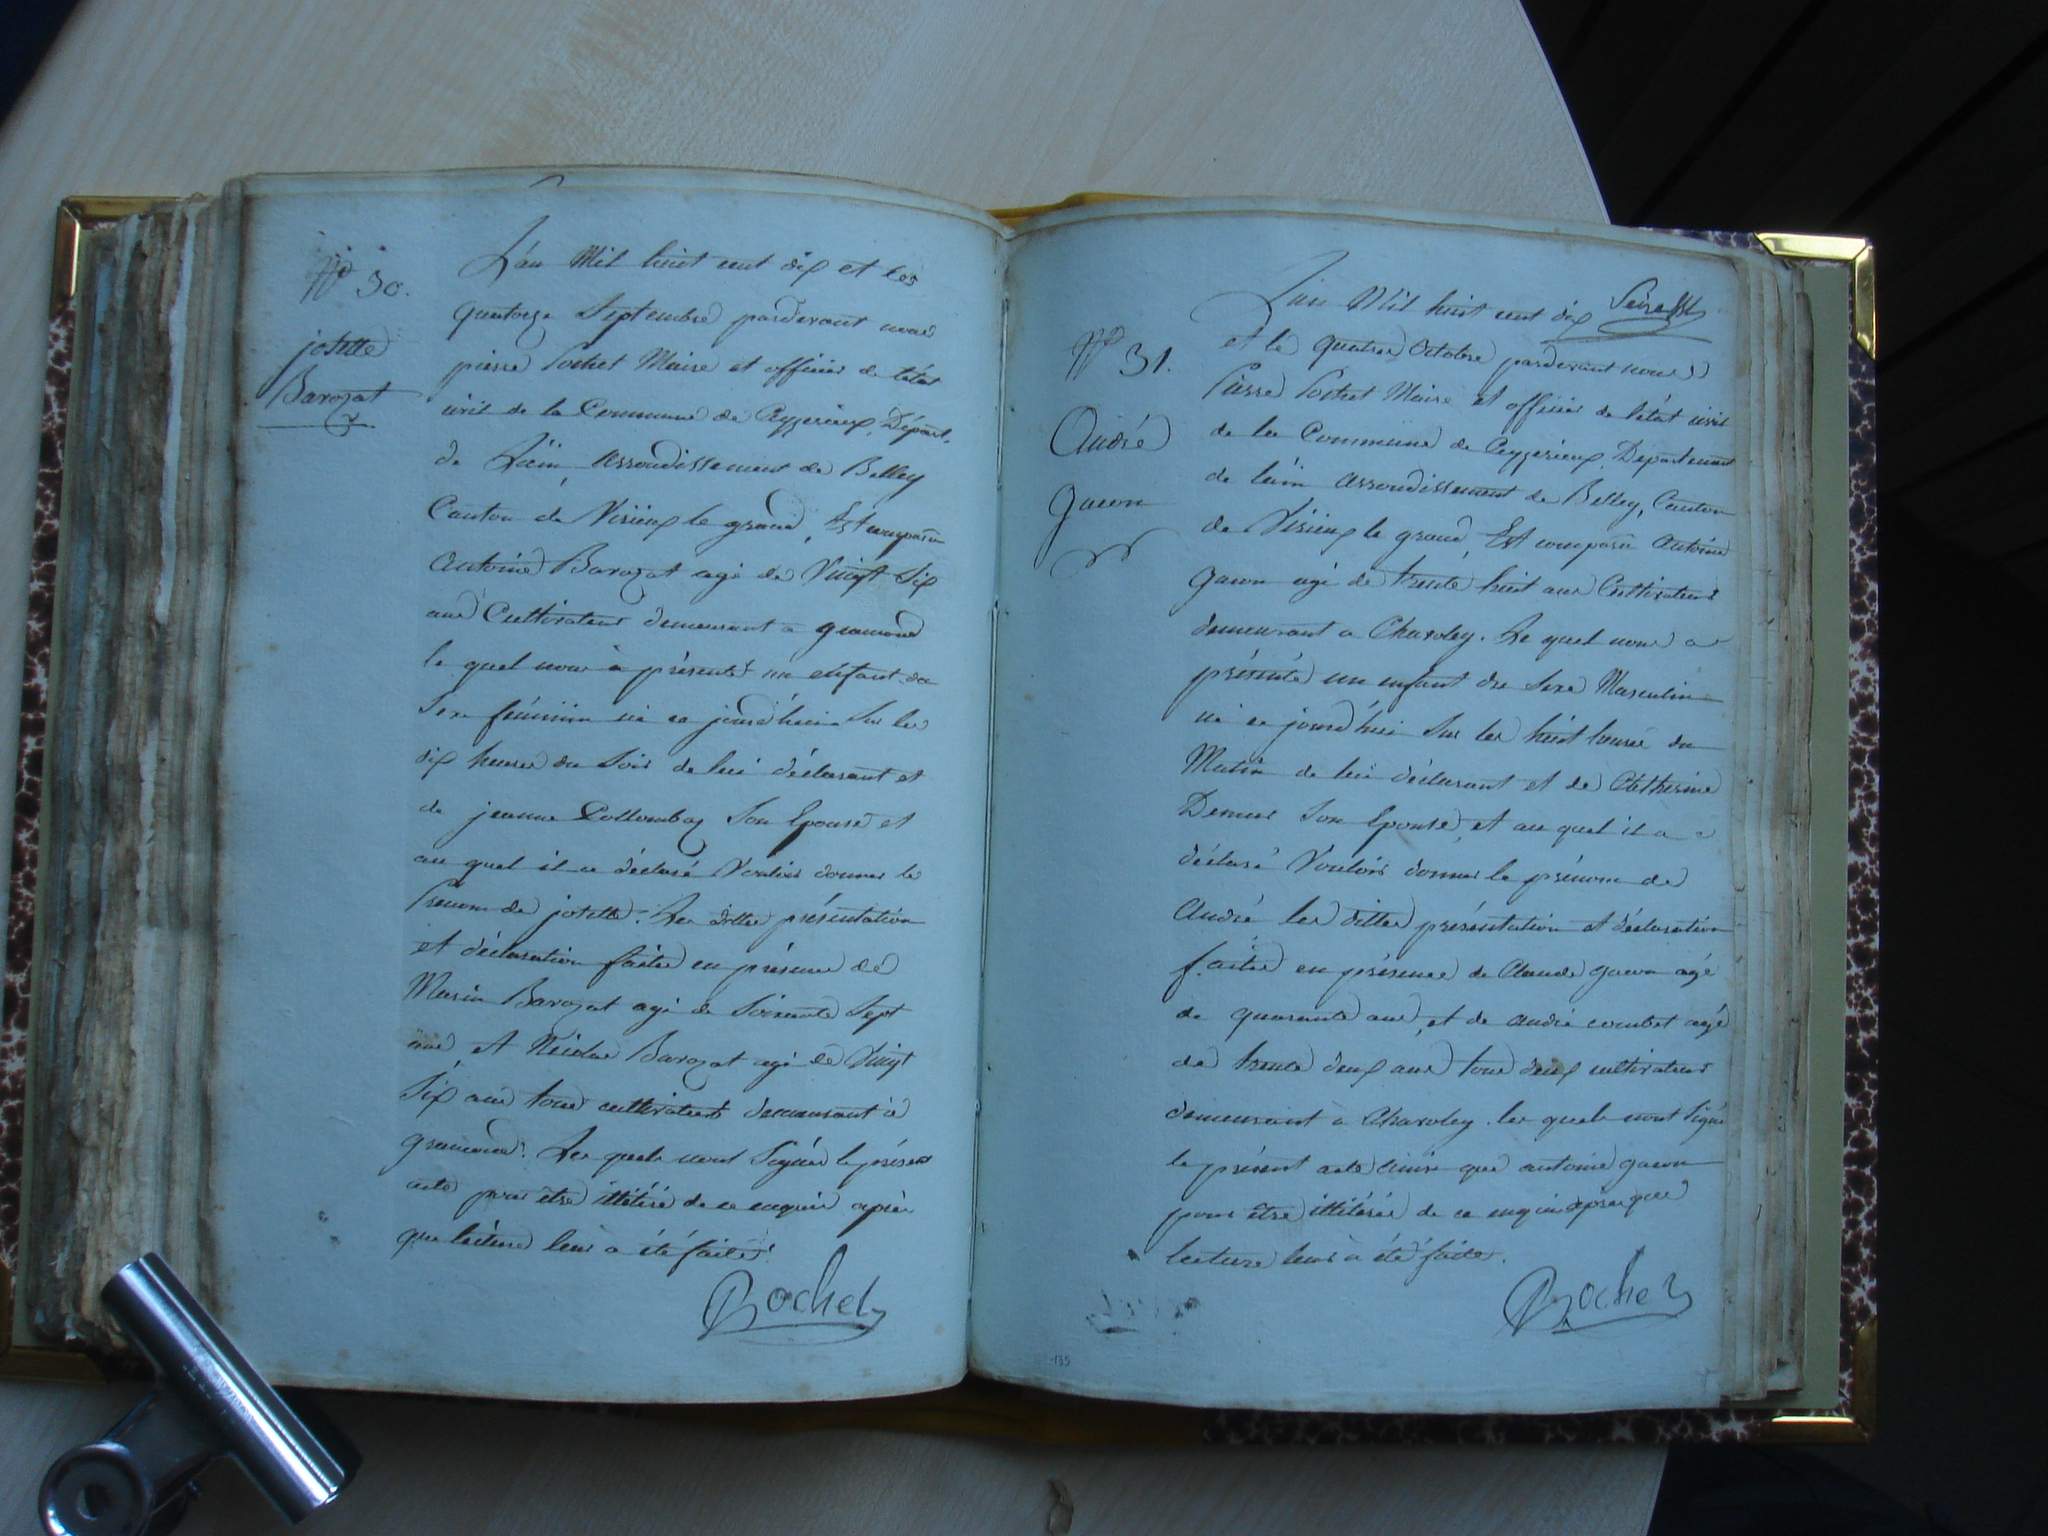 N° 30.
josette
Barozat
L'an Mil huit cent dix et le
quatorze Septembre pardevant nous
pierre Pochet Maire et officier de l'état
civil de la Commune de Ceyzerieux, Départ.
de L'ain, arrondissement de Belley
Canton de Virieux le grand, Est comparu
antoine Barozat agé de Vingt Six
ans Cultivateur demeurant a gramond
le quel nous à présenté un enfant du
Sexe féminin né ce jourd'hui Sur les
dix heures du Soir de lui déclarant et
de jeanne Collombaz Son Epouse et
au quel il a déclaré Vouloir donner le
Prenom de josette. Les dittes présentation
et déclaration faites en présence de
Marin Barozat agé de Soixante Sept
ans, et Nicolas Barozat agé de Vingt
Six ans tous cultivateurs demeurant à
gramond. Les quels n'ont Signés le présent
acte pour être illitéré de ce enquis après
que lecture leur à été faite.
Rochet
N° 31.
André
gacon
L'an Mil huit cent dix
et le quatre Octobre pardevant nous
Pierre Pochet Maire et officier de l'état civil
de la Commune de Ceyzerieux, Departement
de l'ain arrondissement de Belley, Canton
de Virieux le grand, Est comparu antoine
gacon agé de trente huit ans Cultivateur
demeurant a Charoley. Le quel nous a
présenté un enfant du Sexe Masculin
né ce jourd'hui Sur les huit heures du
Matin de lui déclarant et de Cletherine
Son Epouse, et au quel il a
déclaré Vouloir donner le prénom de
André les dittes présentation et déclaration
faites en présence de Claude gacon agé
de quarante ans, et de andré combet agé
de trente deux ans tous deux cultivateurs
demeurant à Charoley. les quels n'ont signé
le présent acte ainsi que antoine gacon
pour être illitérés de ce enquis après que
lecture leur à été faite.
Rochet
135